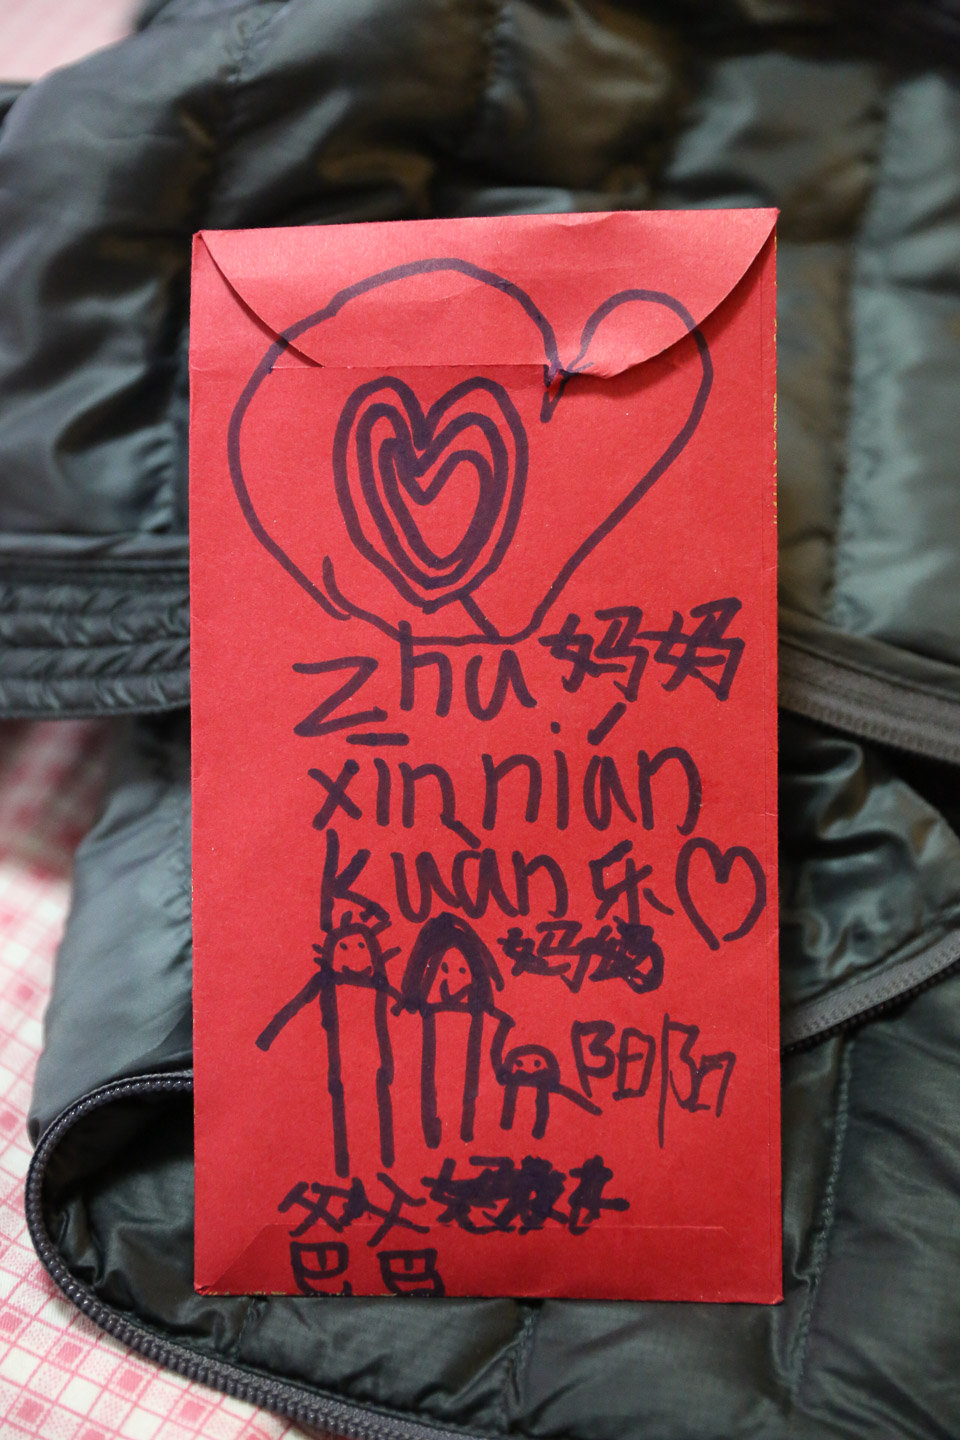 zhu 妈妈
xīn nián
kuàn 乐
妈妈
阳阳
爸爸